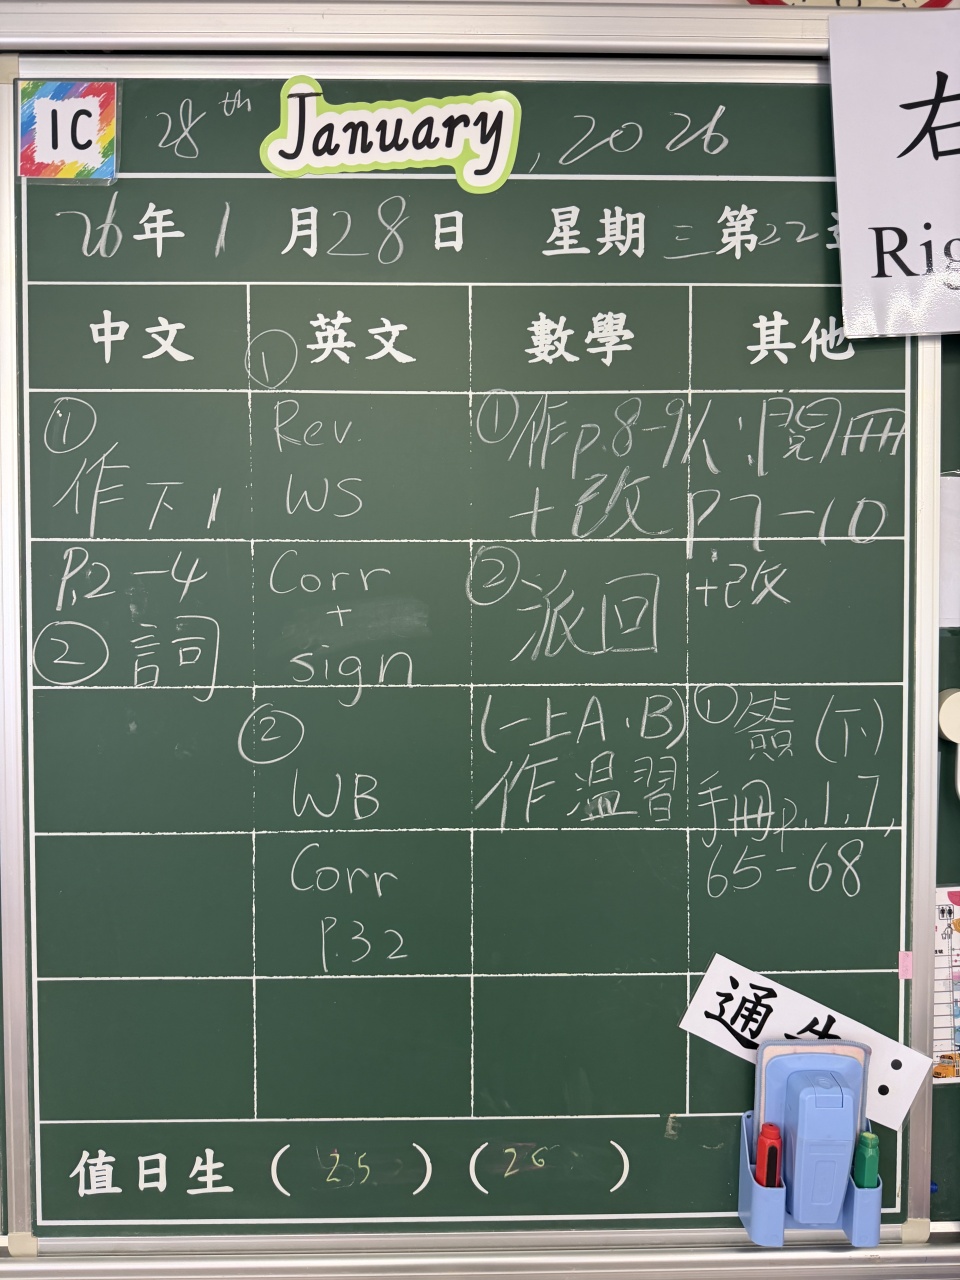 1C
28th January, 2026
26年1月28日 星期三第22
右
Rig
中文
①
作下1
P.2-4
②詞
英文
①
Rev.
WS
Corr
+
sign
②
WB
Corr
P.32
數學
①作p.8-9
+改
②派回
(一上A、B)
作溫習
其他
人:閱冊
P7-10
+改
①簽(下)
手冊p.1,7,
65-68
通告:
值日生(25)(26)